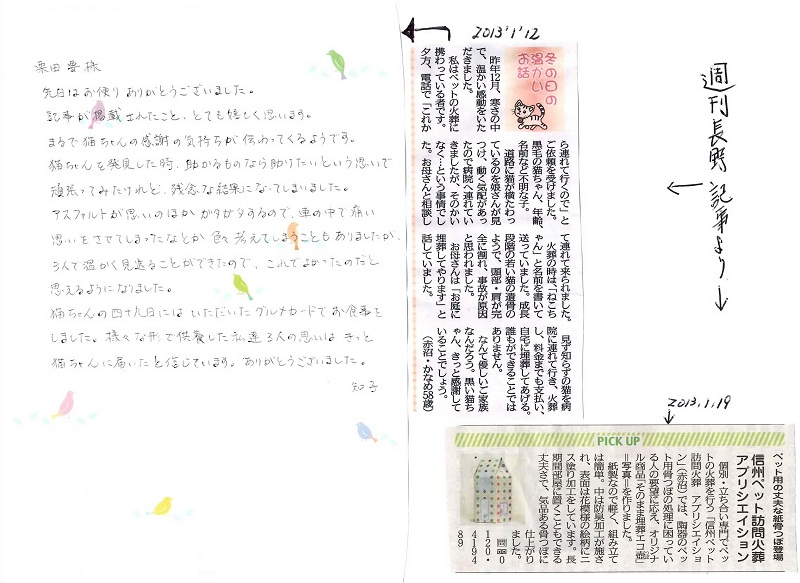 栗田 豊 様
先日はお便りありがとうございました。
記事が掲載されたこと、とても嬉しく思います。
まるで猫ちゃんの感謝の気持ちが伝わってくるようです。
猫ちゃんを発見した時、助かるものなら助けたいという思いで
頑張ってみたけれど、残念な結果になってしまいました。
アスファルトが思いのほかガタガタするので、車の中で痛い
思いをさせてしまったなとか色々考えてしまうこともありましたが、
3人で温かく見送ることができたので、これでよかったのだと
思えるようになりました。
猫ちゃんの四十九日には いただいたグルメカードでお食事を
しました。様々な形で供養した私達3人の思いは きっと
猫ちゃんに届いたと信じています。ありがとうございました。
知子
2013'1'12
冬の日の
温かい
お話
昨年12月、寒さの中
で、温かい感動をいた
だきました。
私はペットの火葬に
携わっている者です。
夕方、電話で「これか
ら連れて行くので」と
ご依頼を受けました。
黒毛の猫ちゃん、年齢、
名前など不明な子。
道路に猫が横たわっ
ているのを娘さんが見
つけ、動く気配があっ
たので病院へ連れてい
きましたが、そのかい
なく…という事情でし
た。お母さんと相談し
て連れて来られました。
火葬の時は、「ねこち
ゃん」と名前を書いて
送っていました。成長
段階の若い猫の遺骨の
ようで、頭部・肩が完
全に割れ、事故が原因
と思われました。
お母さんは「お庭に
埋葬してやります」と
話していました。
見ず知らずの猫を病
院に連れて行き、火葬
し、料金までも支払い、
自宅に埋葬してあげる。
誰もができることでは
ありません。
なんて優しいご家族
なんだろう。黒い猫ち
ゃん、きっと感謝して
いることでしょう。
（赤沼・かなめ58歳）
週刊長野 記事より
2013,1,19
PICK UP
ペット用の丈夫な紙骨つぼ登場
信州ペット訪問火葬
アプリシエイション
個別・立ち合い専門でペッ
トの火葬を行う「信州ペット
訪問火葬 アプリシエイショ
ン」（赤沼）では、陶器のペッ
ト用骨つぼの処理に困ってい
る人の要望に応え、オリジナ
ル商品「そのまま埋葬エコ壺」
＝写真＝を作りました。
紙製なので軽く、組み立て
は簡単。中は防臭加工が施さ
れ、表面は花模様の絵柄にニ
ス塗り加工をしています。長
期間部屋に置くこともできる
丈夫さで、気品ある骨つぼに
仕上がり
ました。
0
120・
4194
89